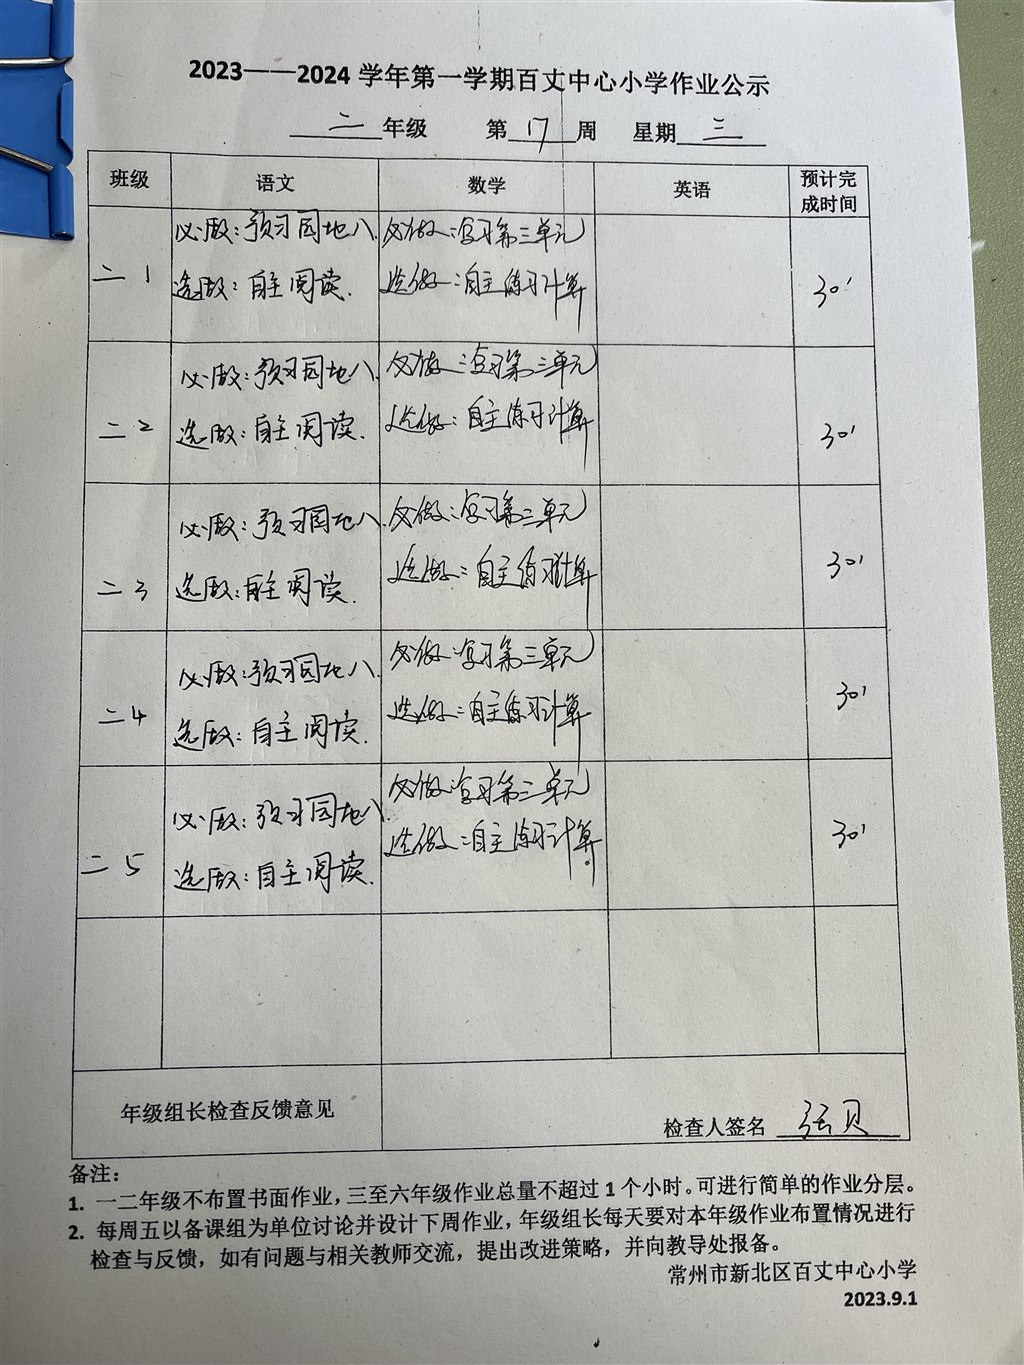 2023——2024 学年第一学期百丈中心小学作业公示
二年级 第17周 星期三
班级 语文 数学 英语 预计完成时间
必做：预习园地八. 必做：复习第三单元
二1 30'
选做：自主阅读. 选做：自主练习计算
必做：预习园地八. 必做：复习第三单元
二2 30'
选做：自主阅读. 选做：自主练习计算
必做：预习园地八. 必做：复习第三单元
二3 30'
选做：自主阅读. 选做：自主练习计算
必做：预习园地八. 必做：复习第三单元
二4 30'
选做：自主阅读. 选做：自主练习计算
必做：预习园地八. 必做：复习第三单元
二5 30'
选做：自主阅读. 选做：自主练习计算.
年级组长检查反馈意见 检查人签名 张贝
备注：
1. 一二年级不布置书面作业，三至六年级作业总量不超过 1 个小时。可进行简单的作业分层。
2. 每周五以备课组为单位讨论并设计下周作业，年级组长每天要对本年级作业布置情况进行
检查与反馈，如有问题与相关教师交流，提出改进策略，并向教导处报备。
常州市新北区百丈中心小学
2023.9.1